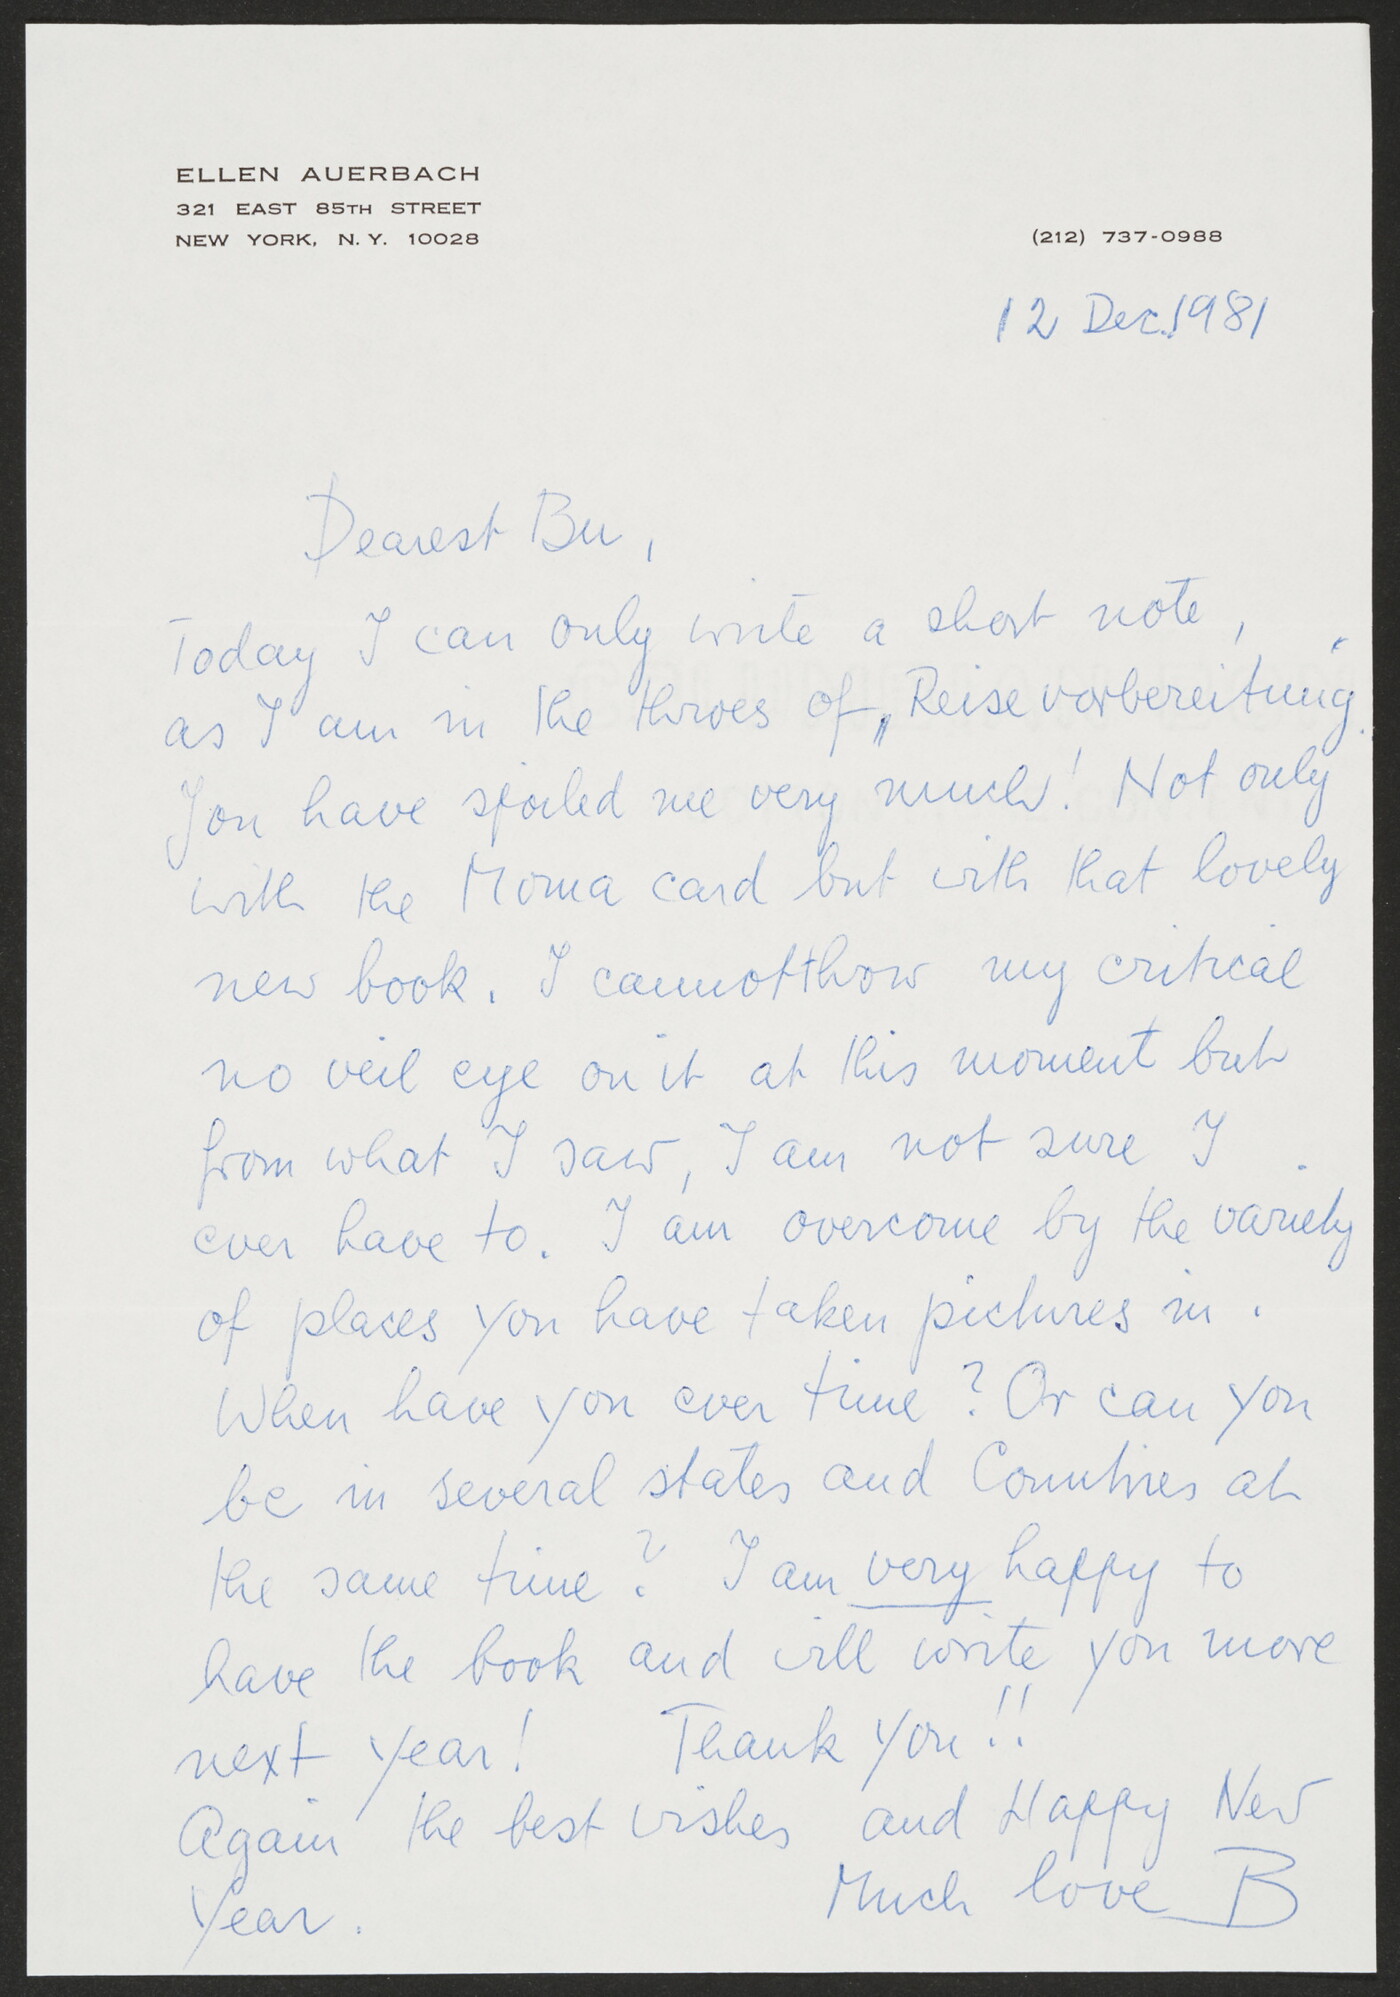 ELLEN AUERBACH
321 EAST 85TH STREET
NEW YORK, N.Y. 10028
(212) 737-0988
12 Dec. 1981
Dearest Bu,
Today I can only write a short note,
as I am in the throes of „Reisevorbereitung“.
You have spoiled me very much! Not only
with the Moma card but with that lovely
new book. I cannot throw my critical
no veil eye on it at this moment but
from what I saw, I am not sure I
ever have to. I am overcome by the variety
of places you have taken pictures in.
When have you ever time? Or can you
be in several states and Countries at
the same time? I am very happy to
have the book and will write you more
next year! Thank you!!
Again the best wishes and Happy New
Year. Much love B